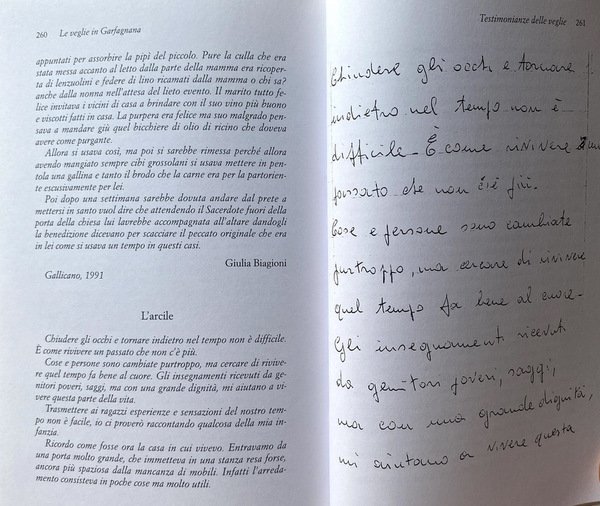 260 Le veglie in Garfagnana
appuntati per assorbire la pipì del piccolo. Pure la culla che era
stata messa accanto al letto dalla parte della mamma era ricoper-
ta di lenzuolini e federe di lino ricamati dalla mamma o chi sa?
anche dalla nonna nell'attesa del lieto evento. Il marito tutto fe-
lice invitava i vicini di casa a brindare con il suo vino più buono
e viscotti fatti in casa. La purpera era felice ma suo malgrado pen-
sava a mandare giù quel bicchiere di olio di ricino che doveva
avere come purgante.
Allora si usava così, ma poi si sarebbe rimessa perché allora
avendo mangiato sempre cibi grossolani si usava mettere in pen-
tola una gallina e tanto il brodo che la carne era per la partorien-
te escusivamente per lei.
Poi dopo una settimana sarebbe dovuta andare dal prete a
mettersi in santo vuol dire che attendendo il Sacerdote fuori della
porta della chiesa lui lavrebbe accompagnata all'altare dandogli
la benedizione dicevano per scacciare il peccato originale che era
in lei come si usava un tempo in questi casi.
Giulia Biagioni
Gallicano, 1991
L'arcile
Chiudere gli occhi e tornare indietro nel tempo non è difficile.
È come rivivere un passato che non c'è più.
Cose e persone sono cambiate purtroppo, ma cercare di rivive-
re quel tempo fa bene al cuore. Gli insegnamenti ricevuti da ge-
nitori poveri, saggi, ma con una grande dignità, mi aiutano a vi-
vere questa parte della vita.
Trasmettere ai ragazzi esperienze e sensazioni del nostro tem-
po non è facile, io ci proverò raccontando qualcosa della mia in-
fanzia.
Ricordo come fosse ora la casa in cui vivevo. Entravamo da
una porta molto grande, che immetteva in una stanza resa forse,
ancora più spaziosa dalla mancanza di mobili. Infatti l'arreda-
mento consisteva in poche cose ma molto utili.
Testimonianze delle veglie 261
Chiudere gli occhi e tornare
indietro nel tempo non è
difficile. È come rivivere un
passato che non c'è più.
Cose e persone sono cambiate
purtroppo, ma cercare di rivivere
quel tempo fa bene al cuore.
Gli insegnamenti ricevuti
da genitori poveri, saggi,
ma con una grande dignità,
mi aiutano a vivere questa